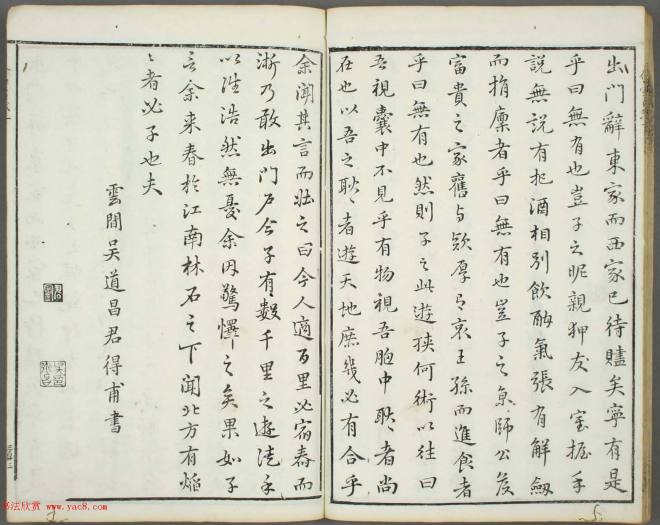 出門辭東家而西家已待贐矣寧有是
乎曰無有也豈子之昵親狎友入室握手
說無說有把酒相別飲酣氣張有解劔
而指廩者乎曰無有也豈子之京師公侯
富貴之家舊與欵厚有哀王孫而進食者
乎曰無有也然則子之此遊挾何術以往曰
吾視囊中不見乎有物視吾胸中耿耿者尚
在也以吾之耿耿者遊天地庶幾必有合乎
余聞其言而壯之曰今人適百里必宿舂而
浙乃敢出門戶今子有數千里之遊徒手
以往浩然無憂余因驚懌之矣果如子
言余来春於江南林石之下聞北方有焰
焰者必子也夫
雲間吳道昌君得甫書
书法欣赏 www.yac8.com